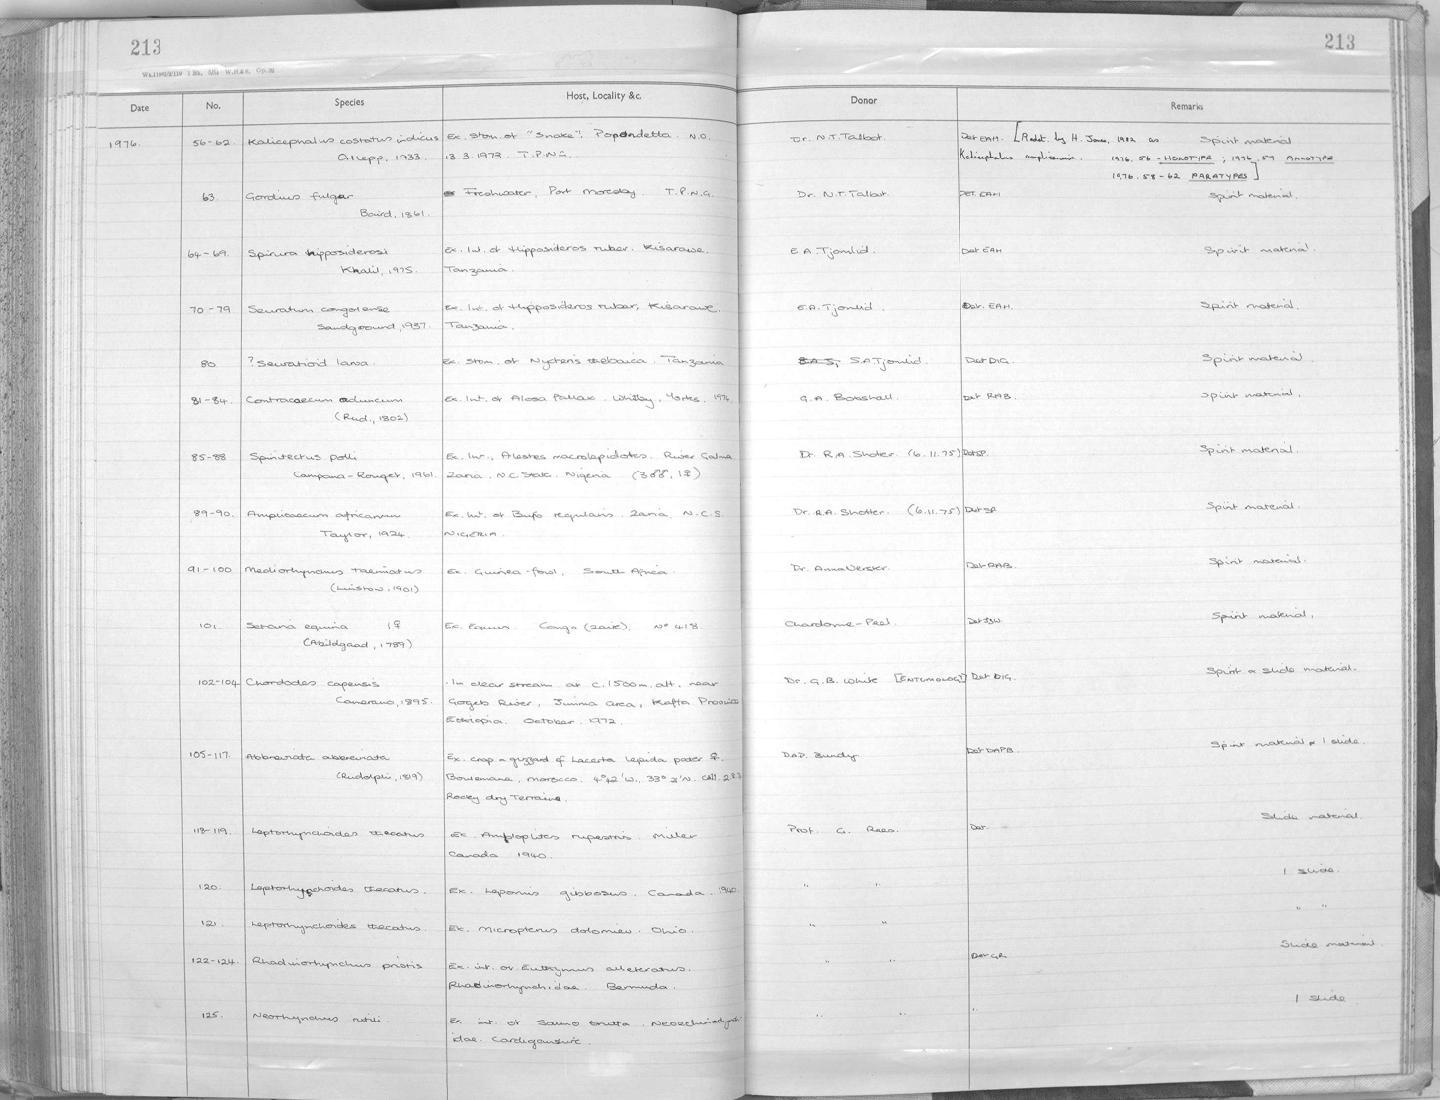 213
213
Date No. Species Host, Locality &c. Donor Remarks
1976. 56-62. Kalicephalus costatus indicus Ex. Stom. of "Snake". Popondetta. N.D. Dr. N.T. Talbot. Det EAH. [Redet. by H. Jones, 1982 as Spirit material
Ortlepp, 1933. 13.3.1973. T.P.N.G. Kalicephalus 1976.56 - HOLOTYPE ; 1976.57 ALLOTYPE
1976.58-62 PARATYPES]
63 Gordius fulgur Freshwater, Port Moresby. T.P.N.G. Dr. N.T. Talbot. DET. EAH Spirit material.
Baird, 1861.
64-69. Spirura hipposiderosi Ex. Int. of Hipposideros ruber. Kisarawe. E A. Tjomlid. Det EAH Spirit material.
Khalil, 1975. Tanzania.
70-79 Seuratum congolense Ex. Int. of Hipposideros ruber, Kisarawe. E.A. Tjomlid. Det. EAH. Spirit material.
Sandground, 1937. Tanzania.
80 ? Seuratioid larva. Ex. Stom. of Nycteris thebaica. Tanzania S.A. Tjomlid. Det DIG. Spirit material.
81-84. Contracaecum aduncum Ex. Int. of Alosa fallax. Whitby, Yorks. 1976. G.A. Boxshall. Det RAB. Spirit material.
(Rud., 1802)
85-88 Spinitectus polli Ex. Int., Alestes macrolepidotus. River Galma Dr. R.A. Shotter (6.11.75) Det SP. Spirit material.
Campana-Rouget, 1961. Zaria. N.C. State. Nigeria (3♂♂, 1♀)
89-90. Amplicaecum africanum Ex. Int. of Bufo regularis. Zaria. N.C.S. Dr. R.A. Shotter. (6.11.75) Det SP Spirit material.
Taylor, 1924. NIGERIA.
91-100 Mediorhynchus taeniatus Ex. Guinea-fowl, South Africa. Dr. Anna Verster. Det RAB. Spirit material.
(Linstow, 1901)
101. Setaria equina 1♀ Ex. Equus. Congo (Zaire). No 418. Chardome-Peel. Det Spirit material.
(Abildgaad, 1789)
102-104 Chordodes capensis In clear stream at c. 1500m. alt. near Dr. G.B. White [ENTOMOLOGY] Det DIG. Spirit & slide material.
Camerano, 1895. Gogeb River, Jimma Area, Kaffa Province
Ethiopia. October. 1972.
105-117. Abbreviata abbreviata Ex. crop & gizzard of Lacerta lepida pater ♀. D.A.P. Bundy Det DAPB. Spirit material & 1 slide.
(Rudolphi, 1819) Boulemane, Morocco. 4°42'W., 33° N.
Rocky dry Terrain.
118-119. Leptorhynchoides thecatus Ex. Ambloplites rupestris. Miller Prof. G. Rees. Det. Slide material.
Canada 1940.
120. Leptorhynchoides thecatus. Ex. Lepomis gibbosus. Canada. 1940. " " 1 slide.
121. Leptorhynchoides thecatus. Ex. Micropterus dolomieu. Ohio. " " " "
122-124. Rhadinorhynchus pristis Ex. int. of Euthynnus alleteratus. " " Det GR. Slide material.
Rhadinorhynchidae. Bermuda.
125. Neorhynchus rutili. Ex. int. of Salmo trutta. Neoechinorhynch- " " " 1 slide
idae. Cardiganshire.